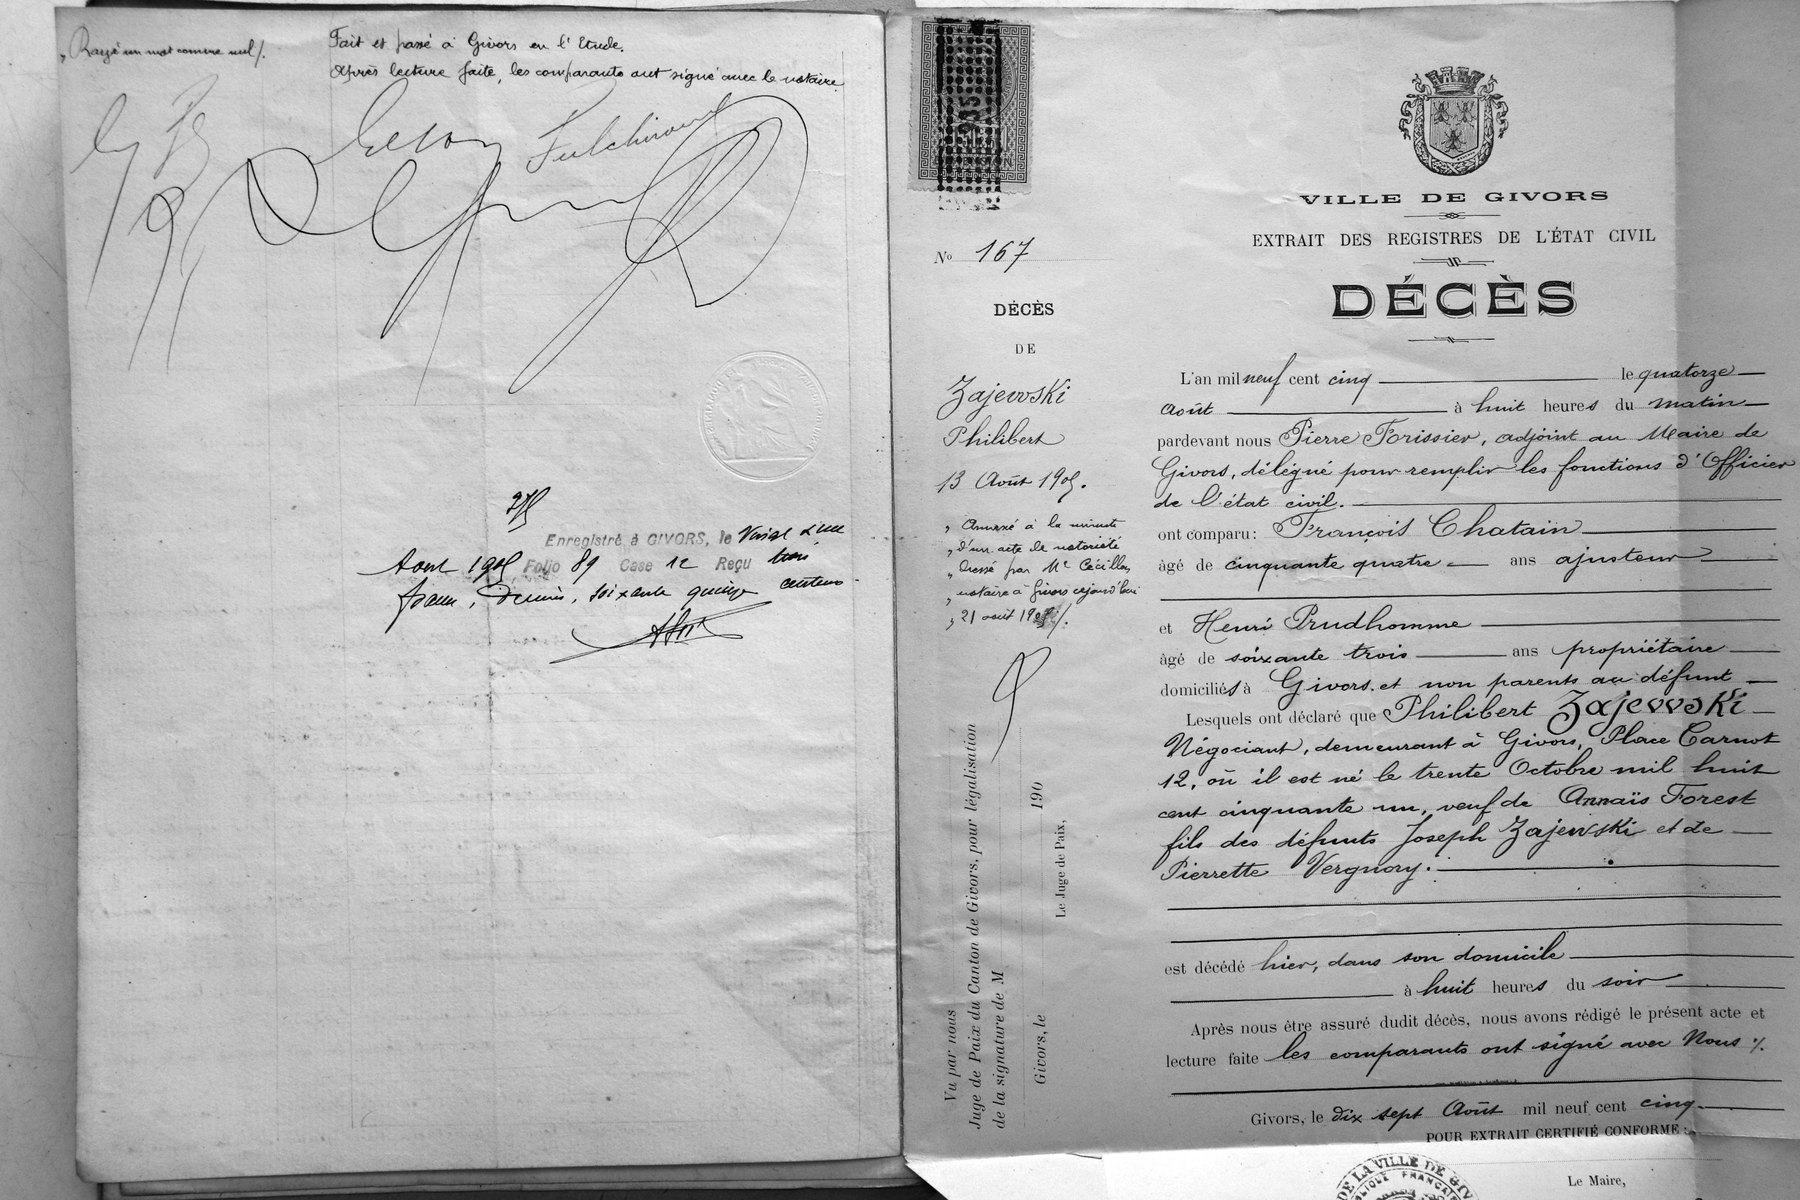 Rayé un mot comme nul /.
Fait et passé à Givors en l'Etude.
Après lecture faite, les comparants ont signé avec le notaire
Fulchiron
Enregistré à GIVORS, le Vingt deux
Aout 1905 Folio 89 Case 12 Reçu trois
francs, Décimes, soixante quinze centimes
No 167
DÉCÈS
DE
Zajewski
Philibert
13 Août 1905.
„ Annexé à la minute
„ d'un acte de notoriété
„ dressé par Me
„ notaire à Givors aujourd'hui
„ 21 août 1905 /.
Vu par nous
Juge de Paix du Canton de Givors, pour légalisation
de la signature de M
Givors, le 190
Le Juge de Paix,
VILLE DE GIVORS
EXTRAIT DES REGISTRES DE L'ÉTAT CIVIL
DÉCÈS
L'an mil neuf cent cinq le quatorze
Août à huit heures du matin
pardevant nous Pierre Forissier, adjoint au Maire de
Givors, délégué pour remplir les fonctions d'Officier
de l'état civil.
ont comparu: François Chatain
âgé de cinquante quatre ans ajusteur
et Henri Prudhomme
âgé de soixante trois ans propriétaire
domiciliés à Givors, et non parents au défunt
Lesquels ont déclaré que Philibert Zajewski
Négociant, demeurant à Givors, Place Carnot
12, où il est né le trente Octobre mil huit
cent cinquante un, veuf de Annaïs Forest
fils des défunts Joseph Zajewski et de
Pierrette Vergnory.
est décédé hier, dans son domicile
à huit heures du soir
Après nous être assuré dudit décès, nous avons rédigé le présent acte et
lecture faite les comparants ont signé avec Nous ./.
Givors, le dix sept Août mil neuf cent cinq
POUR EXTRAIT CERTIFIÉ CONFORME :
DE LA VILLE DE GIV
Le Maire,